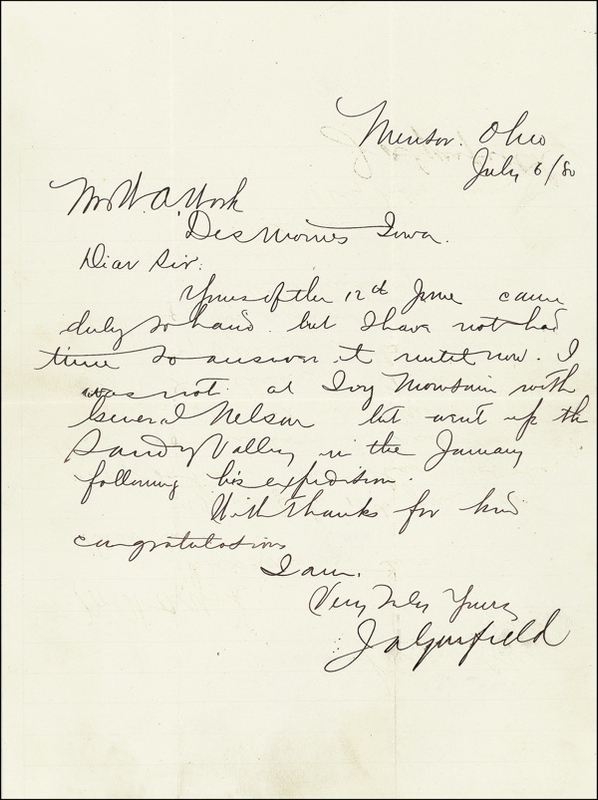 Mentor. Ohio
July 6/80
Mr W. A. York
Des Moines Iowa.
Dear Sir:
Yours of the 12th June came
duly to hand. but I have not had
time to answer it until now. I
was not at Ivy Mountain with
General Nelson but went up the
Sandy Valley in the January
following his expedition.
With thanks for kind
congratulations
I am.
Very Truly Yours
J A Garfield